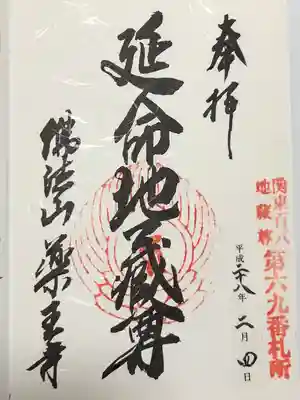 奉拝
関東百八
地蔵尊
第六九番札所
平成二十八年二月四日
延命地蔵尊
佛法山薬王寺